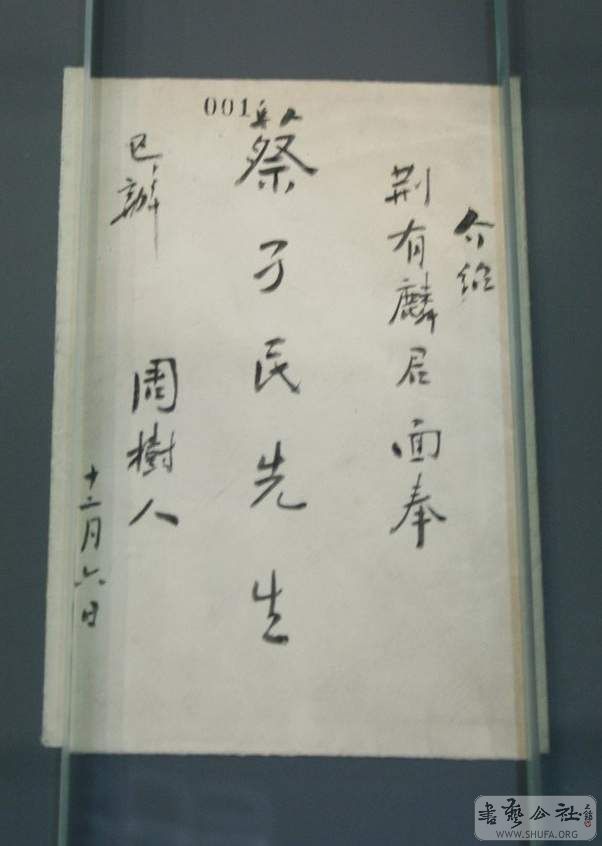 介紹
荆有麟君面奉
001
蔡孑民先生
已辦
周樹人
十二月六日
書藝公社
WWW.SHUFA.ORG